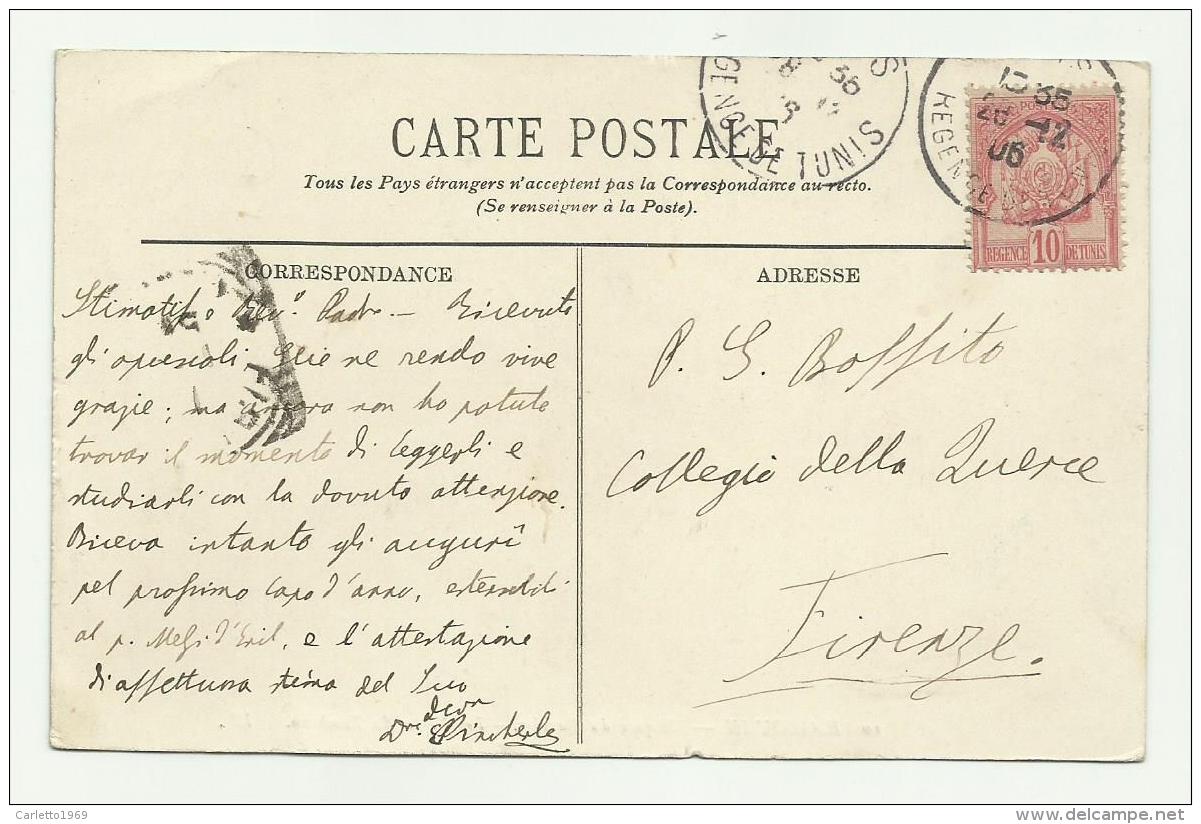 CARTE POSTALE
Tous les Pays étrangers n'acceptent pas la Correspondance au recto.
(Se renseigner à la Poste).
REGENCE DE TUNIS
13 35
28 -12
06
REGENCE
POSTES
REGENCE 10 DE TUNIS
CORRESPONDANCE
Padre — Ricevuto
gli opuscoli Glie ne rendo vive
grazie; ma ancora non ho potuto
trovar il momento di leggerli e
studiarli con la dovuta attenzione.
Riceva intanto gli auguri
pel prossimo capo d'anno, estensibili
al p. Melzi d'Eril, e l'attestazione
di affettuosa stima del Suo
devo
Dre. Pincherle
ADRESSE
P. G. Boffito
Collegio della Querce
Firenze.
Carletto1969
delcampe.net